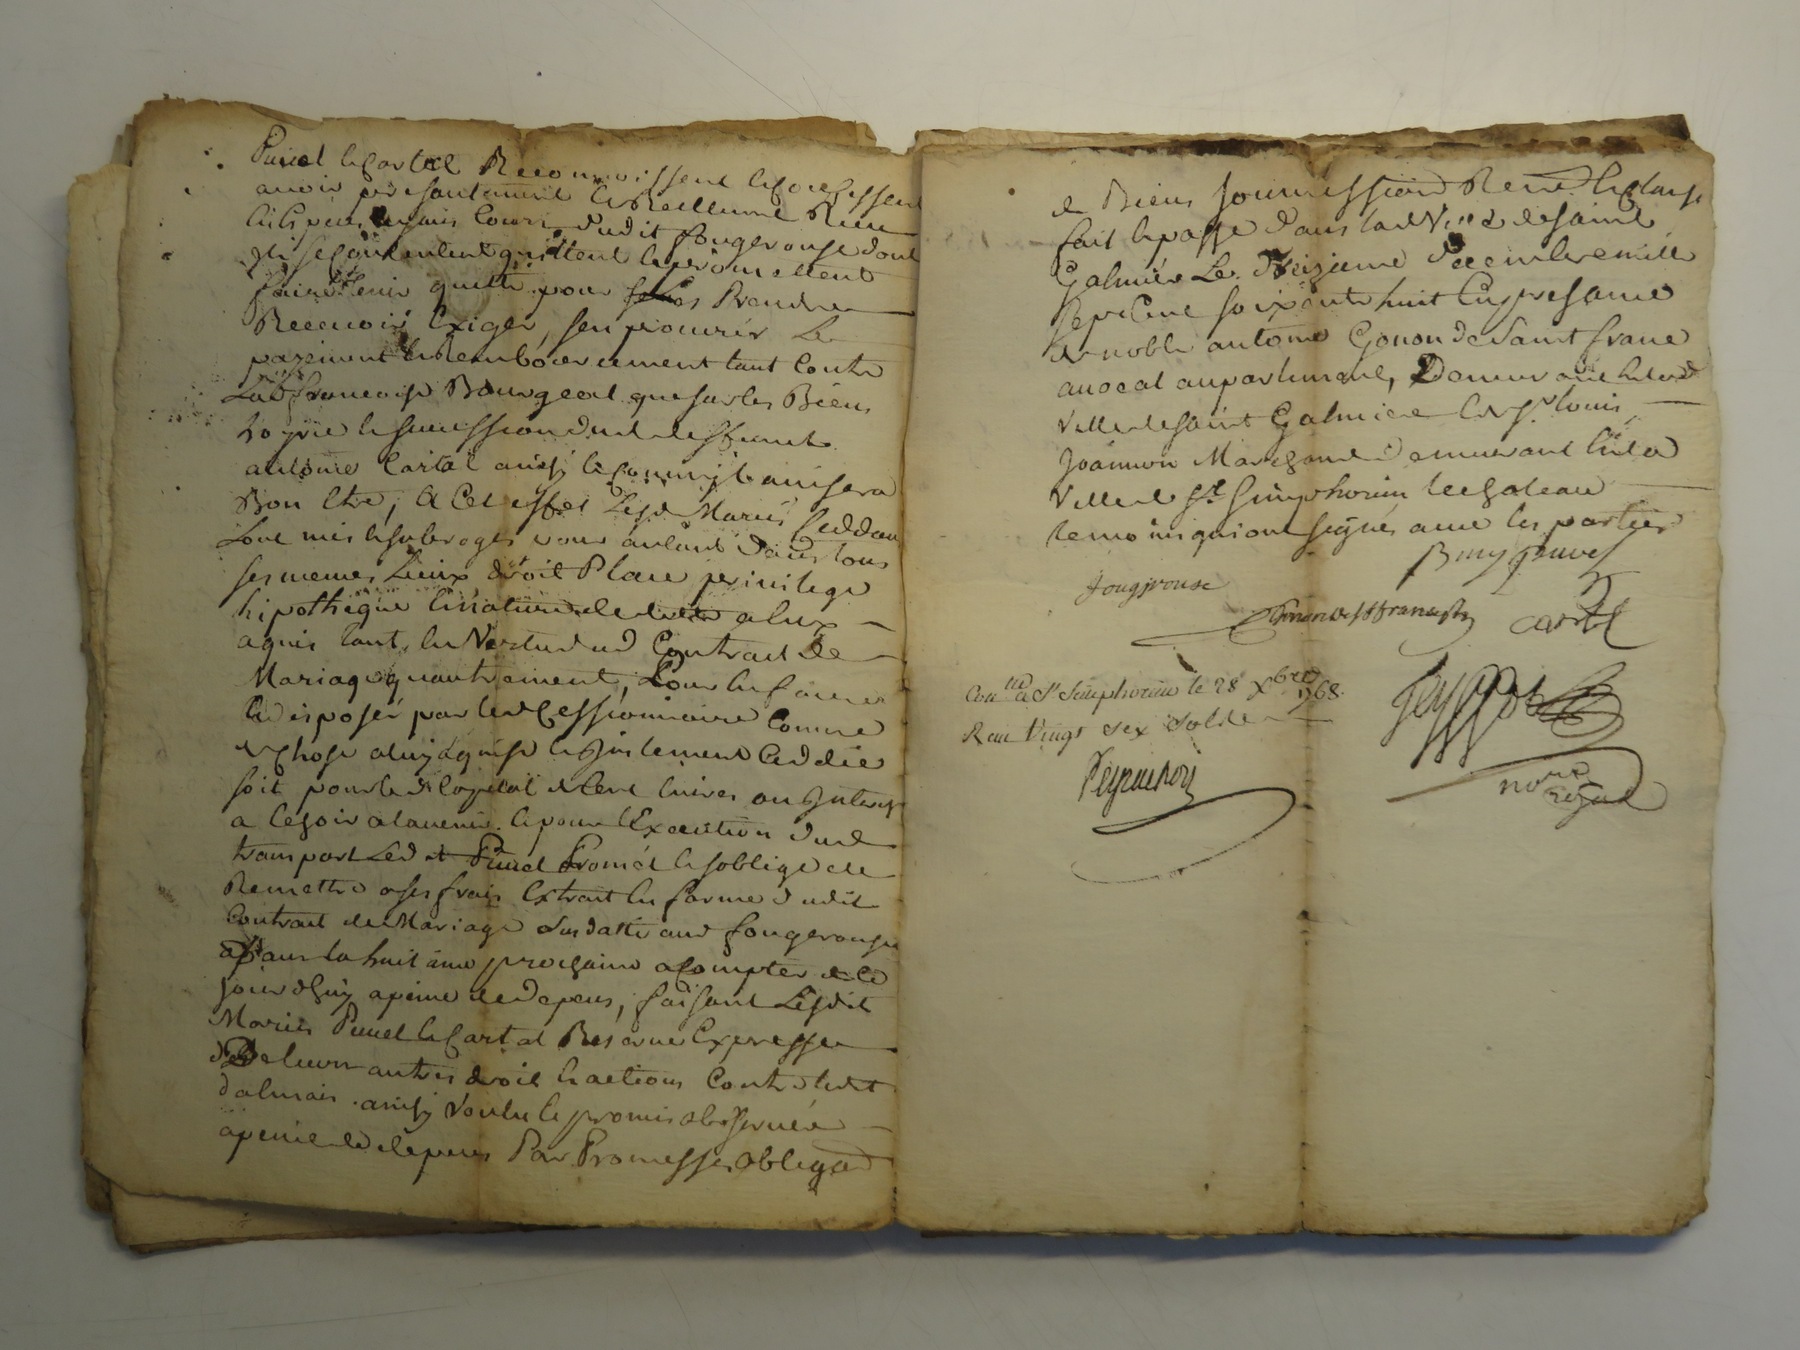 Punel et Cartal Reconnoissent et confessent
avoir presentement et Reellement Receu
en espece ayant cours dudit fougerouse dont
ils se contentent quittent et promettent
faire tenir quitte pour par les Prendre
Recevoir Exiger, s'en pourvoir Le
payement et Remboursement tant Contre
Lad francoise Bourgeat que sur les Biens
hoyrie et succession dud deffunt
antoine Cartal ainsy et comme il avisera
Bon Etre, A Cet effet Lesd Mariés Ceddant
Lont mis et subrogés vous aulant dans tous
ses memes Lieux droit Place privilege
hipotheque et nature de dette a lux
aquis tant en Vertu dud Contrat de
Mariage quautrement, Pour en faire
et disposer par led Cessionnaire Comme
de Chose a luy aquise et justement Ceddée
soit pour led Capital et
a Echoir a lavenir. et pour l'Execution dud
transport Led Punel Promet et soblige de
Remettre a ses frais Extrait en forme dudit
Contrat de Mariage Susdatté aud fougerouse
dans la huitaine prochaine a compter de ce
jourdhuy a peine de depens, faisant Lesdit
Mariés Punel et Cartal Reserve Expresse
de leurs autres droit et actions Contre ledit
dalmais. ainsy voulu et promis observer
a peine de depens Par Promesses obligaon
de Biens soumission Renon et clause
fait et passé dans lad Ville de saint
Galmier Le treizieme Decembre mille
sept Cent soixante huit En presance
de noble antoine Gonon de Saint franc
avocat au parlement, Demeurant en lad
Ville de saint Galmier et de Sr. Louis
Joannon Marchand Demeurant en la
Ville de St. Simphorien le Chateau
temoins qui ont signés avec les parties
fougerouse
Gonon de St franc
Cartal
Conllé a St Simphorien le 28 Xbre 1768.
Reçu Vingt Sex Solds
Peyrachon
nore
Royal